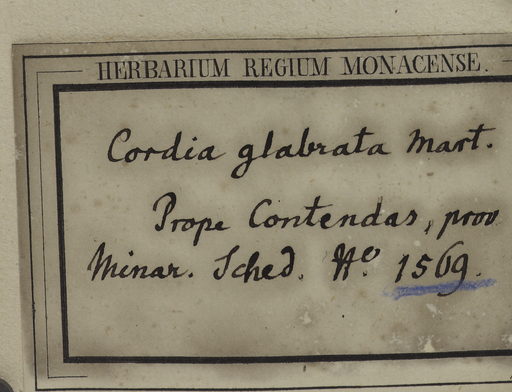 HERBARIUM REGIUM MONACENSE.
Cordia glabrata Mart.
Prope Contendas, prov
Minar. Sched. No. 1569.